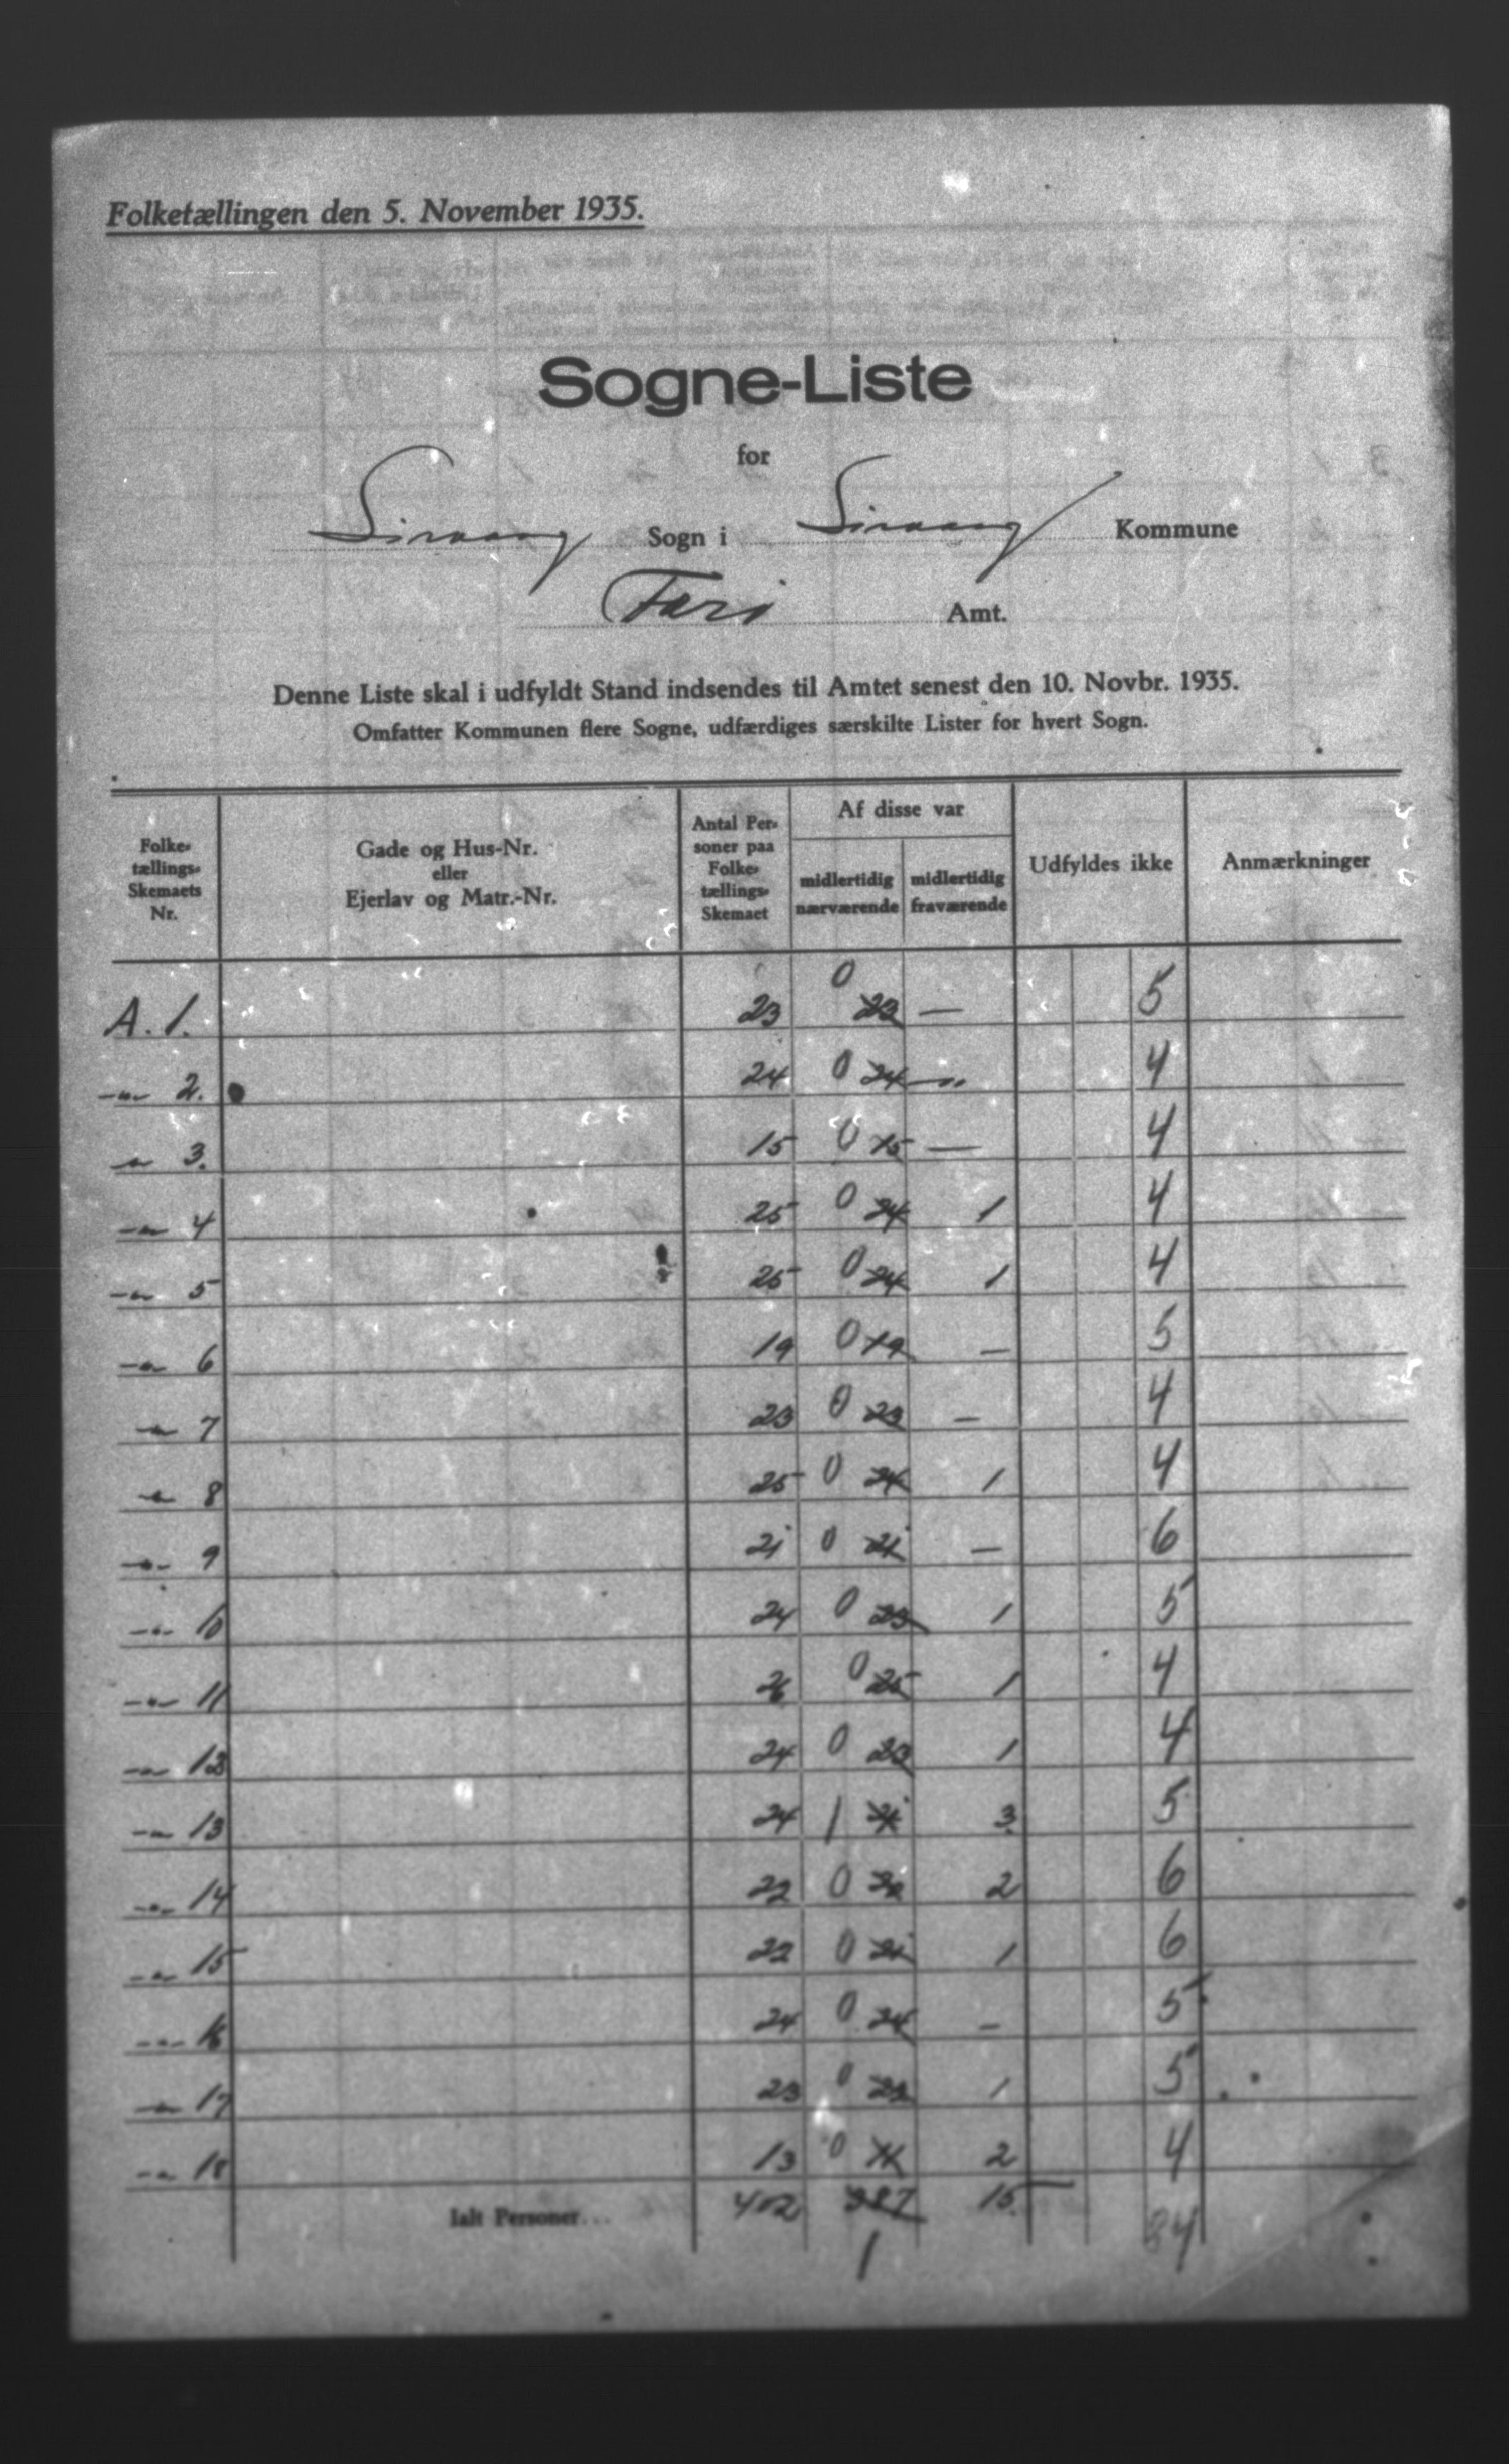 Folketællingen den 5. November 1935.
Sogne-Liste
for
Sirvaag Sogn i Sirvaag Kommune
Færø Amt.
Denne Liste skal i udfyldt Stand indsendes til Amtet senest den 10. Novbr. 1935.
Omfatter Kommunen flere Sogne, udfærdiges særskilte Lister for hvert Sogn.
Folke-
tællings-
Skemaets
Nr.
Gade og Hus-Nr.
eller
Ejerlav og Matr.-Nr.
Antal Per-
soner paa
Folke-
tællings-
Skemaet
Af disse var
midlertidig
nærværende
midlertidig
fraværende
Udfyldes ikke
Anmærkninger
A. 1. 23 0 23 — 5
-"- 2. 24 0 24 -"- 4
-"- 3. 15 0 15 — 4
-"- 4 25 0 24 1 4
-"- 5 25 0 24 1 4
-"- 6 19 0 19 — 5
-"- 7 23 0 23 — 4
-"- 8 25 0 24 1 4
-"- 9 21 0 21 — 6
-"- 10 24 0 23 1 5
-"- 11 26 0 25 1 4
-"- 12 24 0 23 1 4
-"- 13 24 1 21 3 5
-"- 14 22 0 20 2 6
-"- 15 22 0 21 1 6
-"- 16 24 0 24 — 5
-"- 17 23 0 22 1 5
-"- 18 13 0 11 2 4
Ialt Personer... 402 387 15 84
1